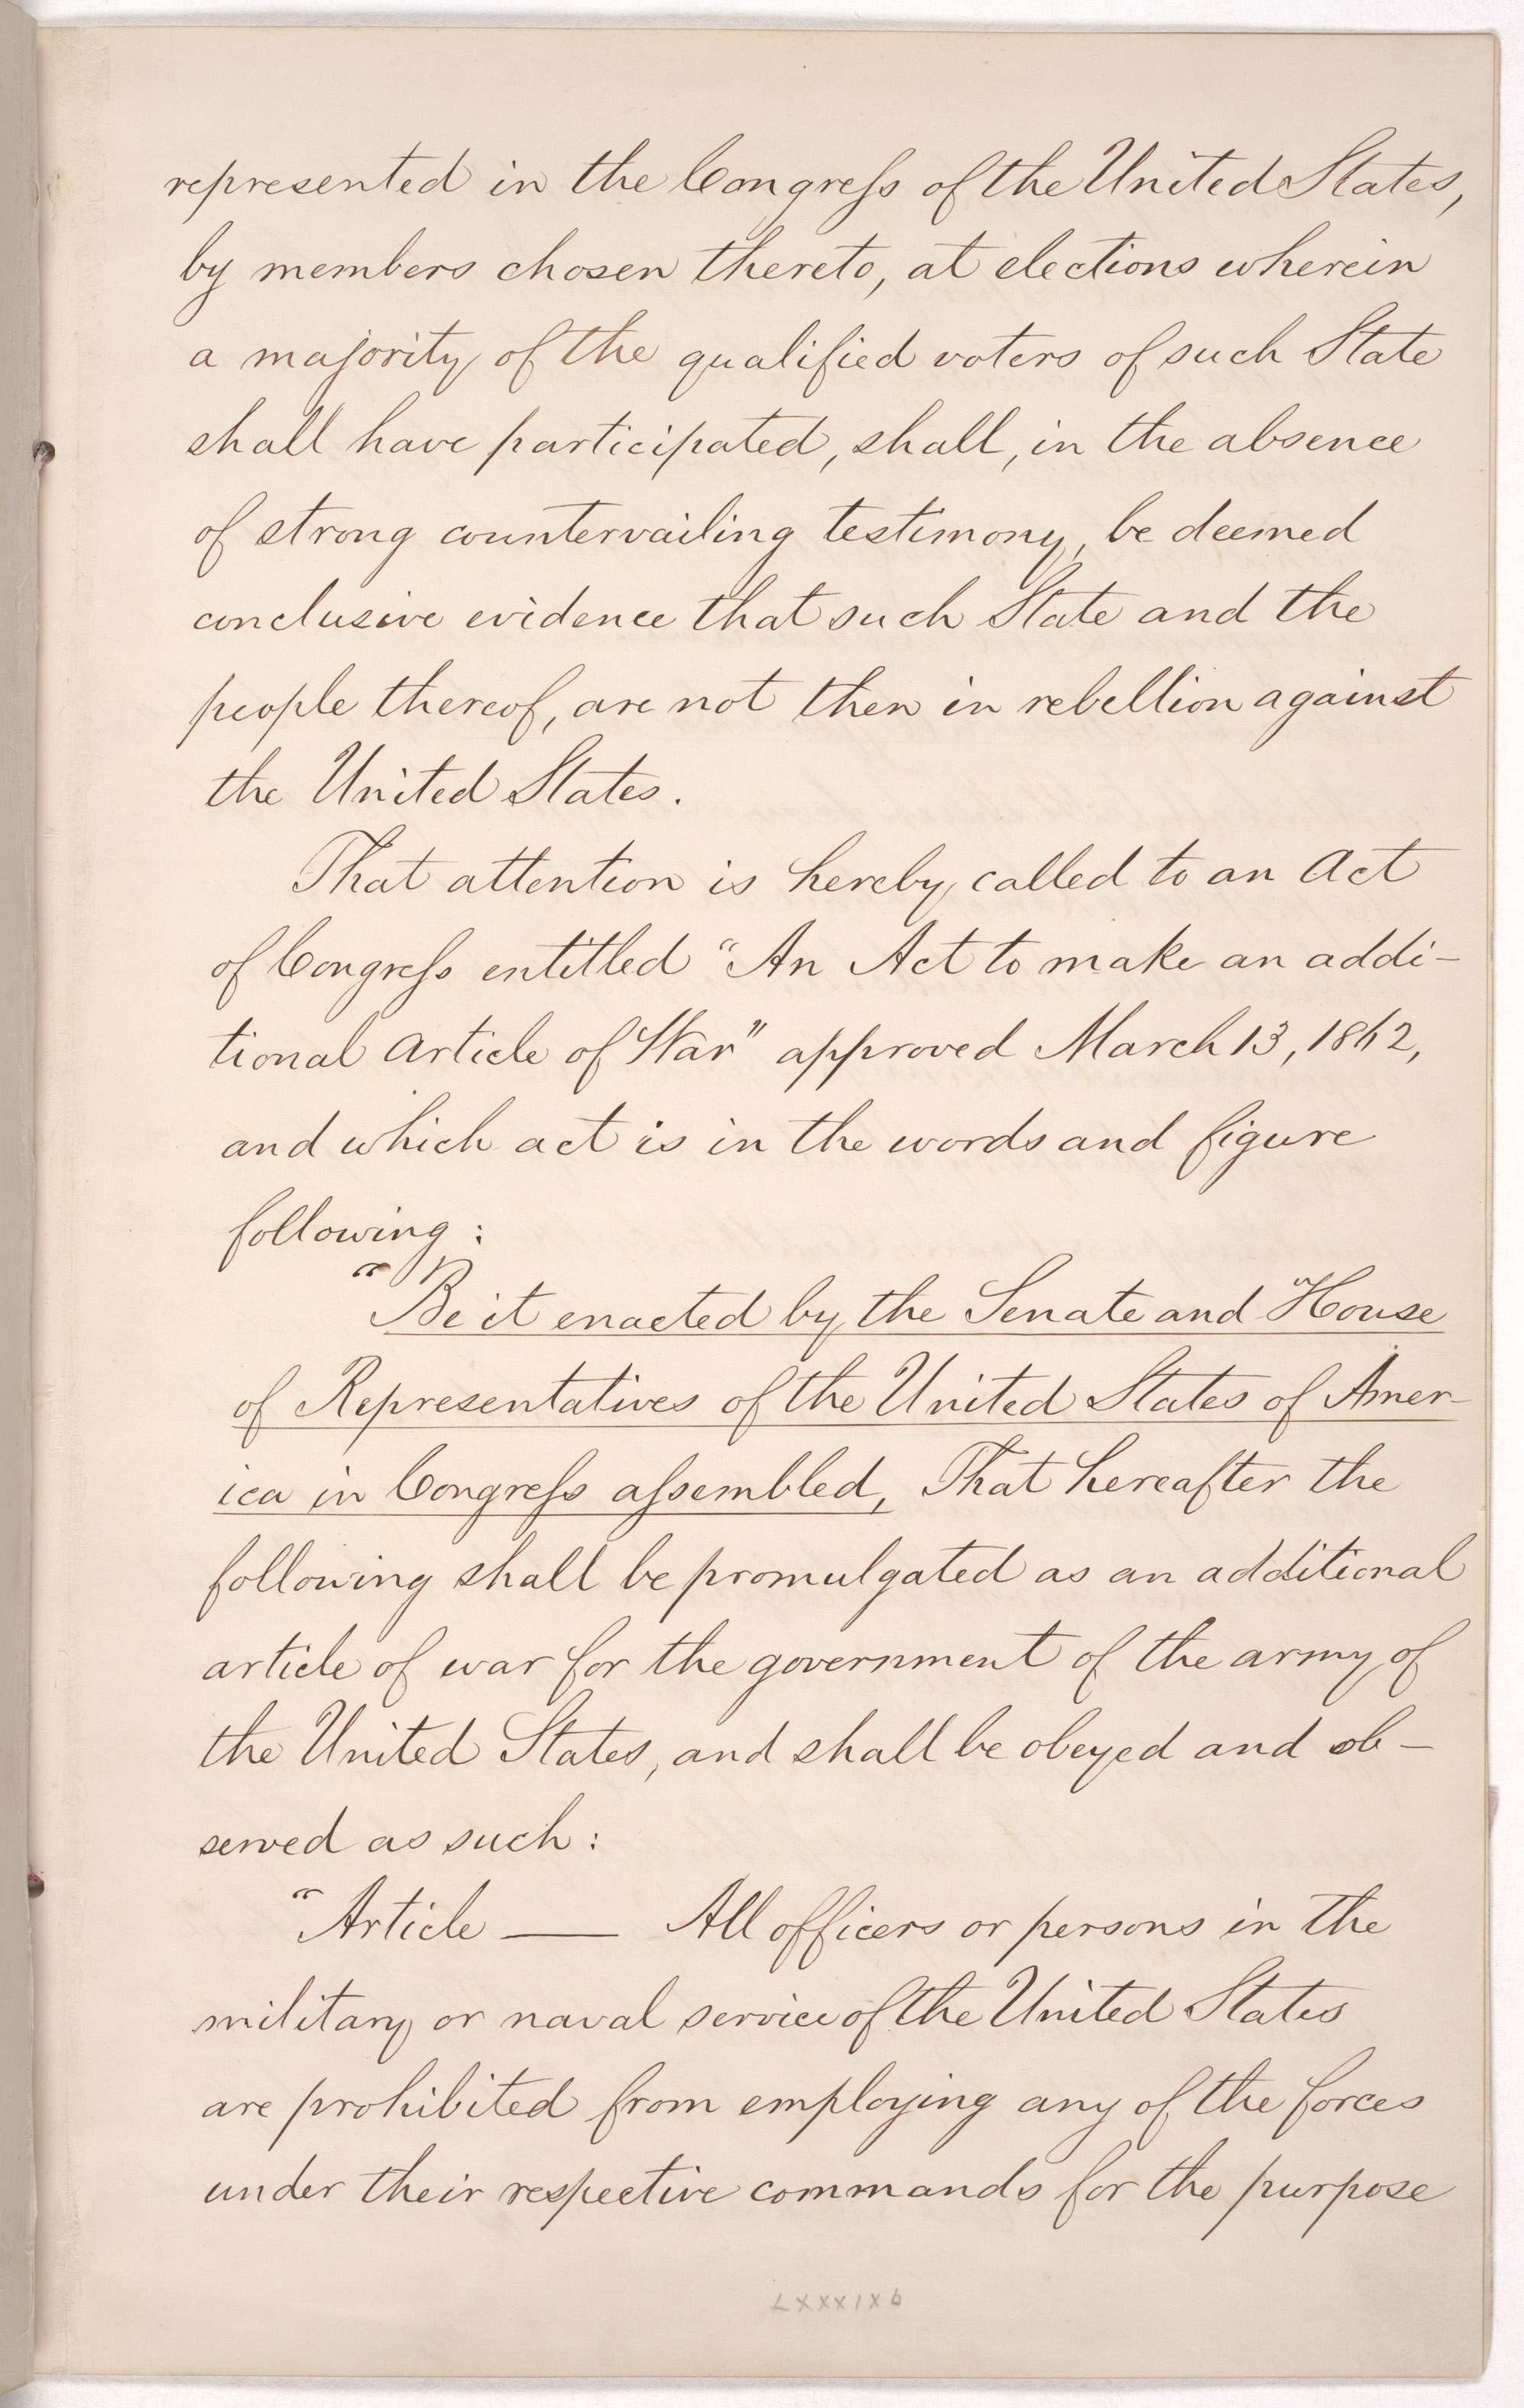 represented in the Congress of the United States,
by members chosen thereto, at elections wherein
a majority of the qualified voters of such State
shall have participated, shall, in the absence
of strong countervailing testimony, be deemed
conclusive evidence that such State and the
people thereof, are not then in rebellion against
the United States.
That attention is hereby called to an Act
of Congress entitled "An Act to make an addi-
tional article of War" approved March 13, 1862,
and which act is in the words and figure
following:
"Be it enacted by the Senate and House
of Representatives of the United States of Amer-
ica in Congress assembled, That hereafter the
following shall be promulgated as an additional
article of war for the government of the army of
the United States, and shall be obeyed and ob-
served as such:
"Article — All officers or persons in the
military or naval service of the United States
are prohibited from employing any of the forces
under their respective commands for the purpose
LXXXIXb